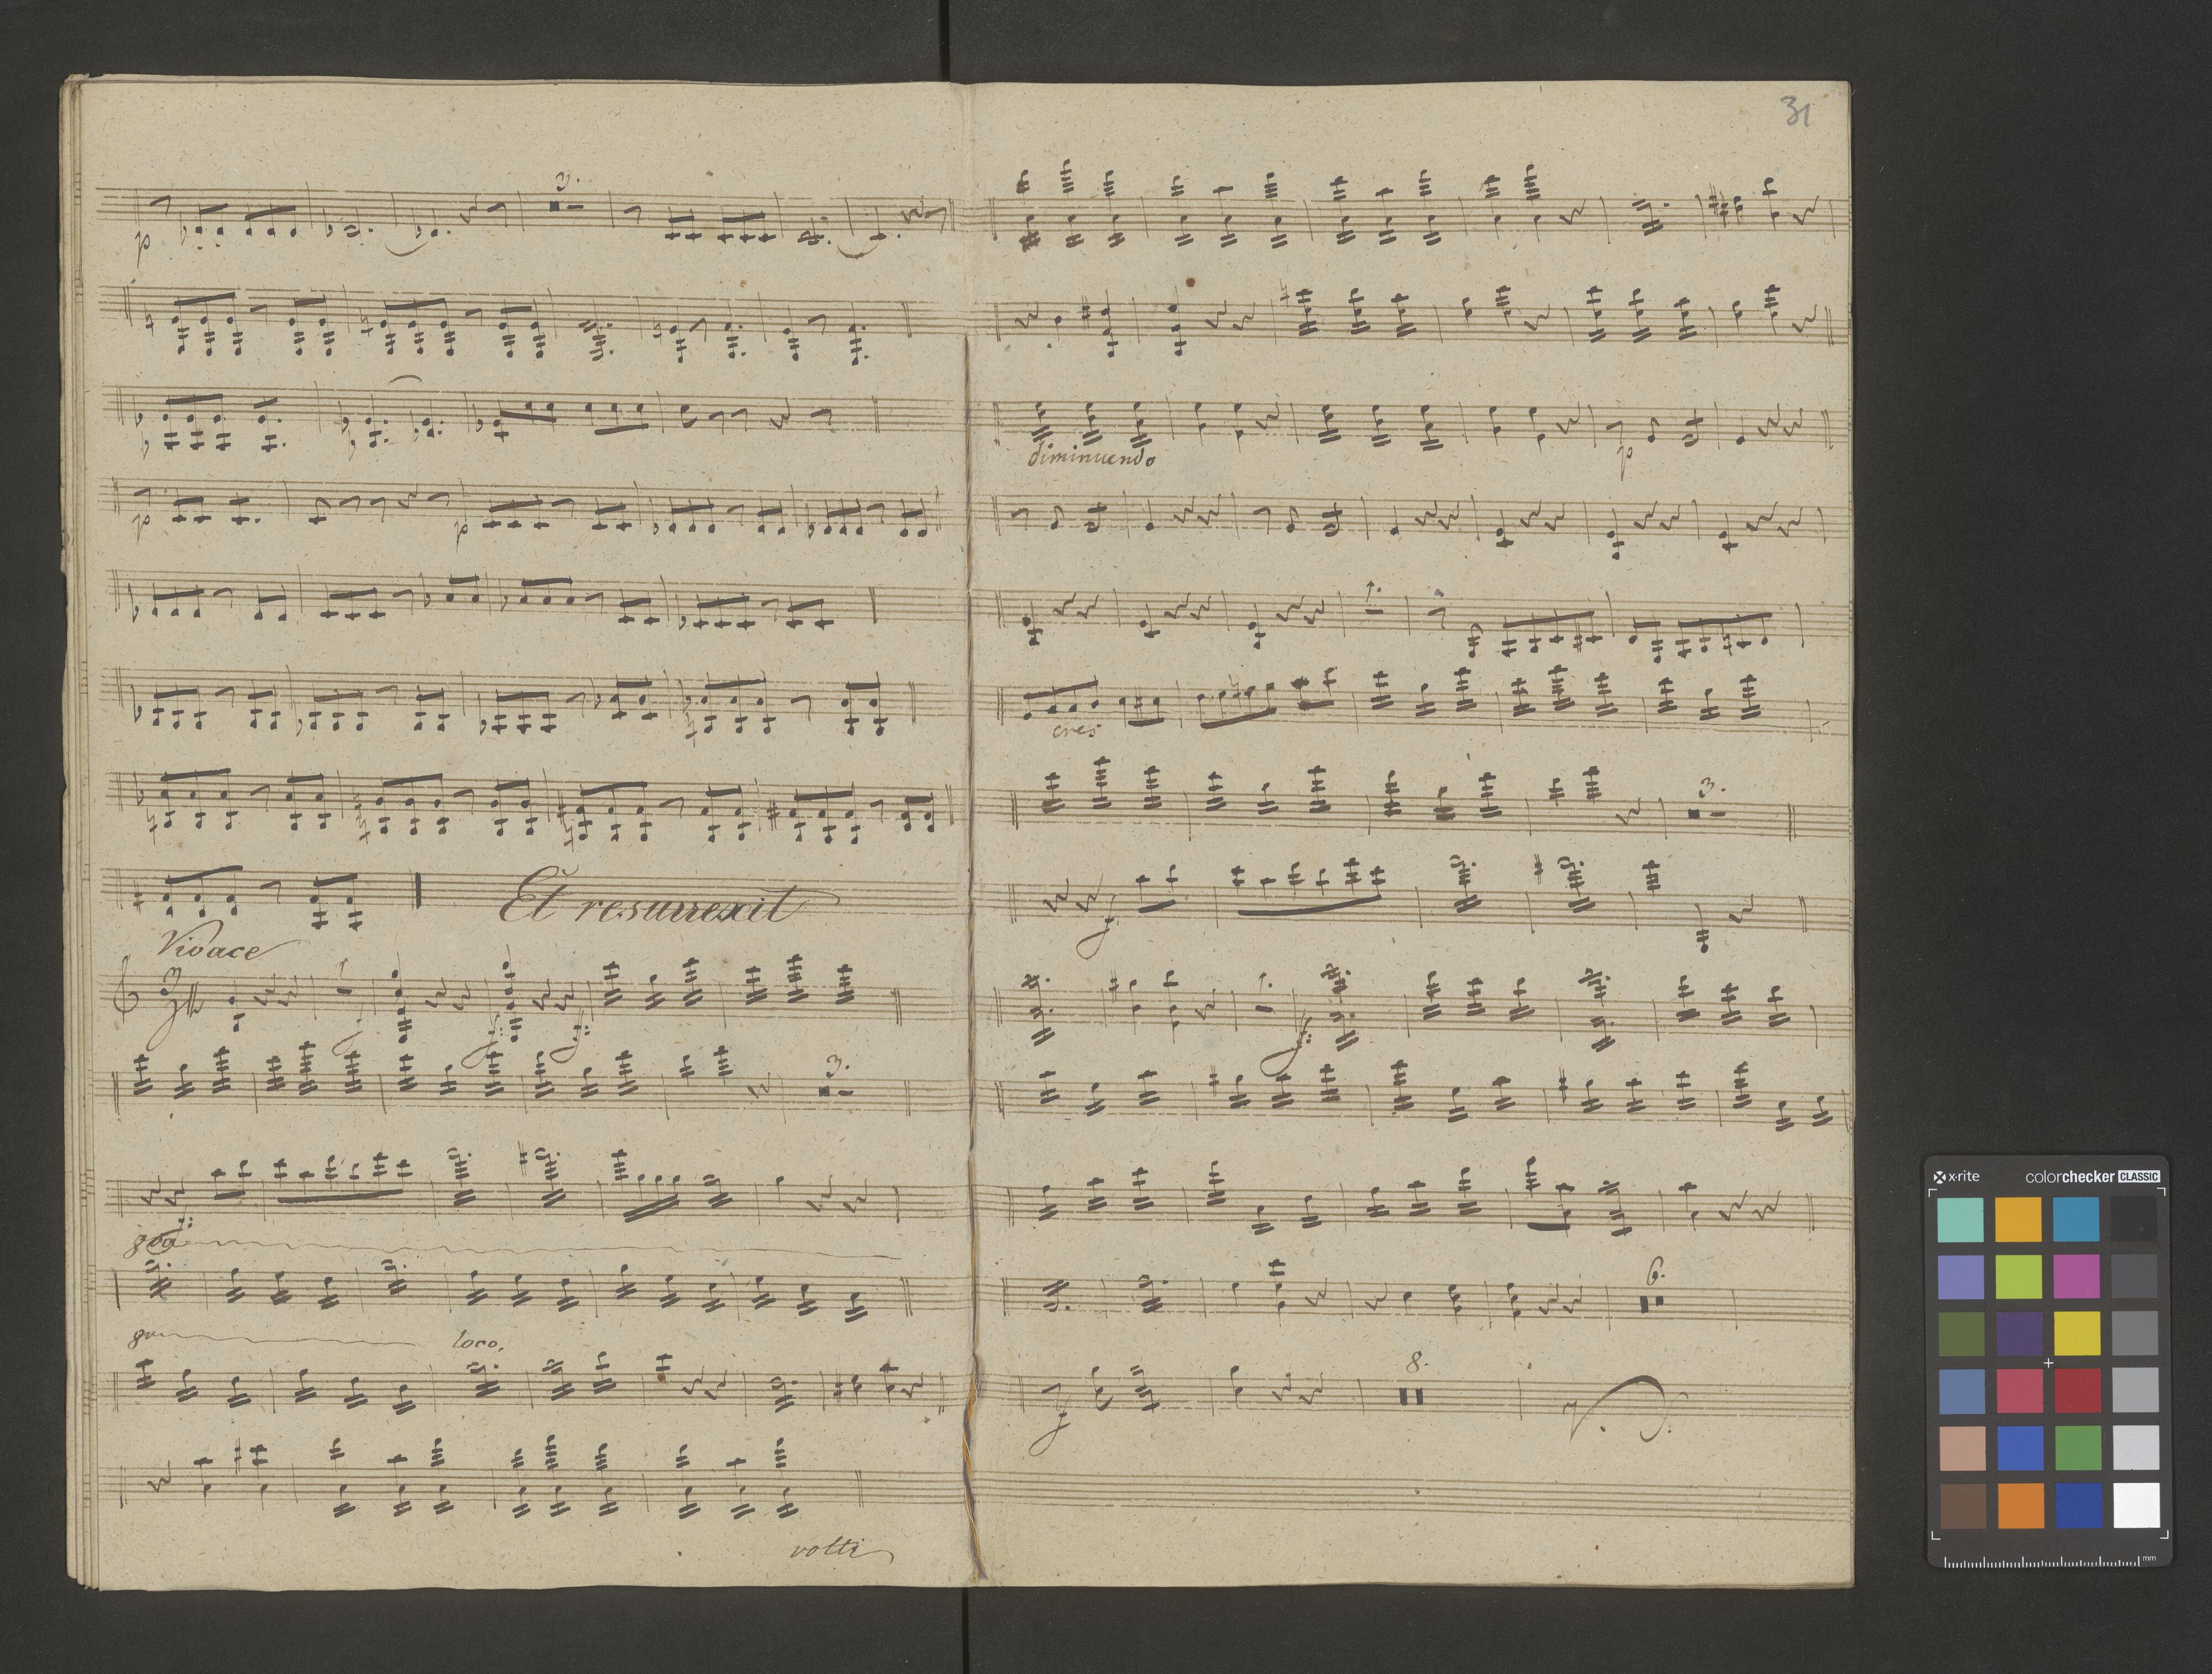 p
2.
p
p
Et resurrexit
Vivace
3/4
1
f
f:
f:
3.
8va
8va
loco,
volti
31
diminuendo
p
1.
cres
3.
f
1.
f:
6.
f
8.
V. S.
x-rite
colorchecker CLASSIC
mm